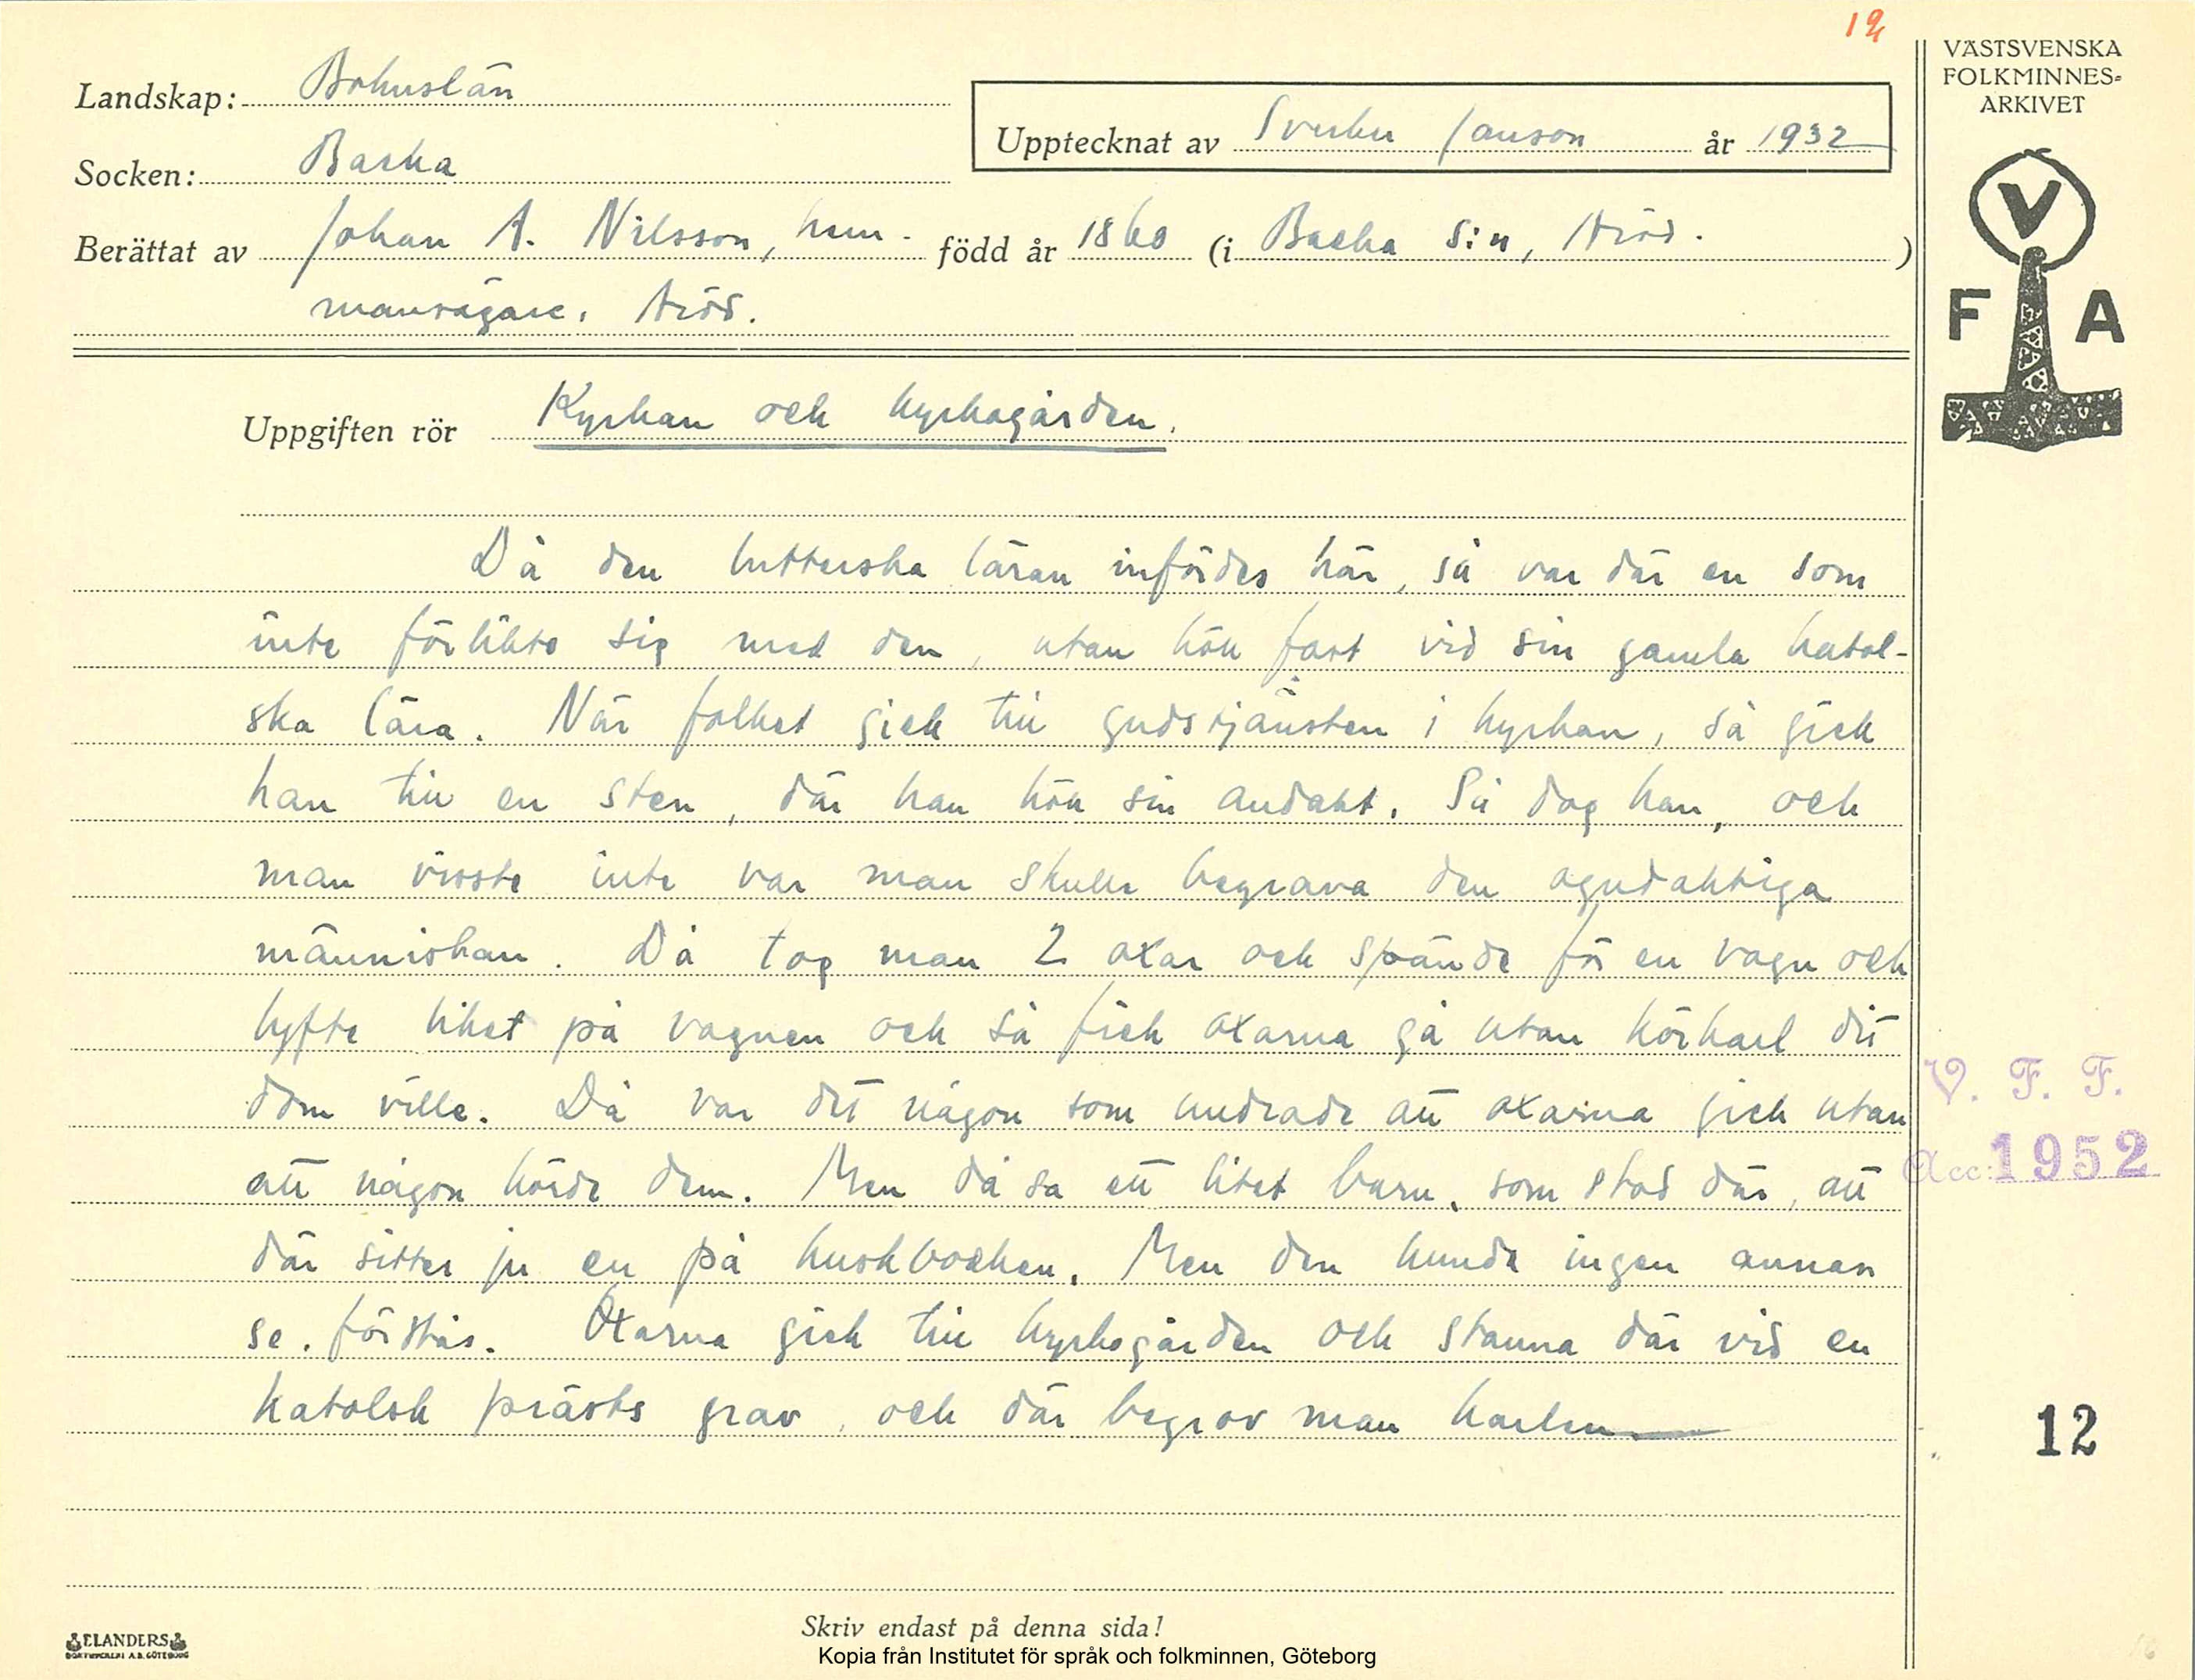 12
VÄSTSVENSKA
FOLKMINNES-
ARKIVET
Landskap: Bohuslän
Upptecknat av Sverker Janson år 1932
Socken: Backa
Berättat av Johan A. Nilsson, hem- född år 1860 (i Backa s:n, Aröd. )
mansägare. Aröd.
V
F A
Uppgiften rör Kyrkan och kyrkogården.
Då den lutterska läran infördes här, så var där en som
inte förlikte sig med den, utan höll fast vid sin gamla katol-
ska lära. När folket gick till gudstjänsten i kyrkan, så gick
han till en sten, där han höll sin andakt. Så dog han, och
man visste inte var man skulle begrava den ogudaktiga
människan. Då tog man 2 oxar och spände för en vagn och
lyfte liket på vagnen och så fick oxarna gå utan körkarl dit
dom ville. Då var det någon som undrade att oxarna gick utan
att någon körde dem. Men då sa ett litet barn, som stod där, att
där sitter ju en på kuskbocken. Men den kunde ingen annan
se, förstås. Oxarna gick till kyrkogården och stanna där vid en
katolsk prästs grav, och där begrov man karlen
V. F. F.
Acc: 1952
12
Skriv endast på denna sida!
ELANDERS
BOKTRYCKERI A.B. GÖTEBORG
Kopia från Institutet för språk och folkminnen, Göteborg